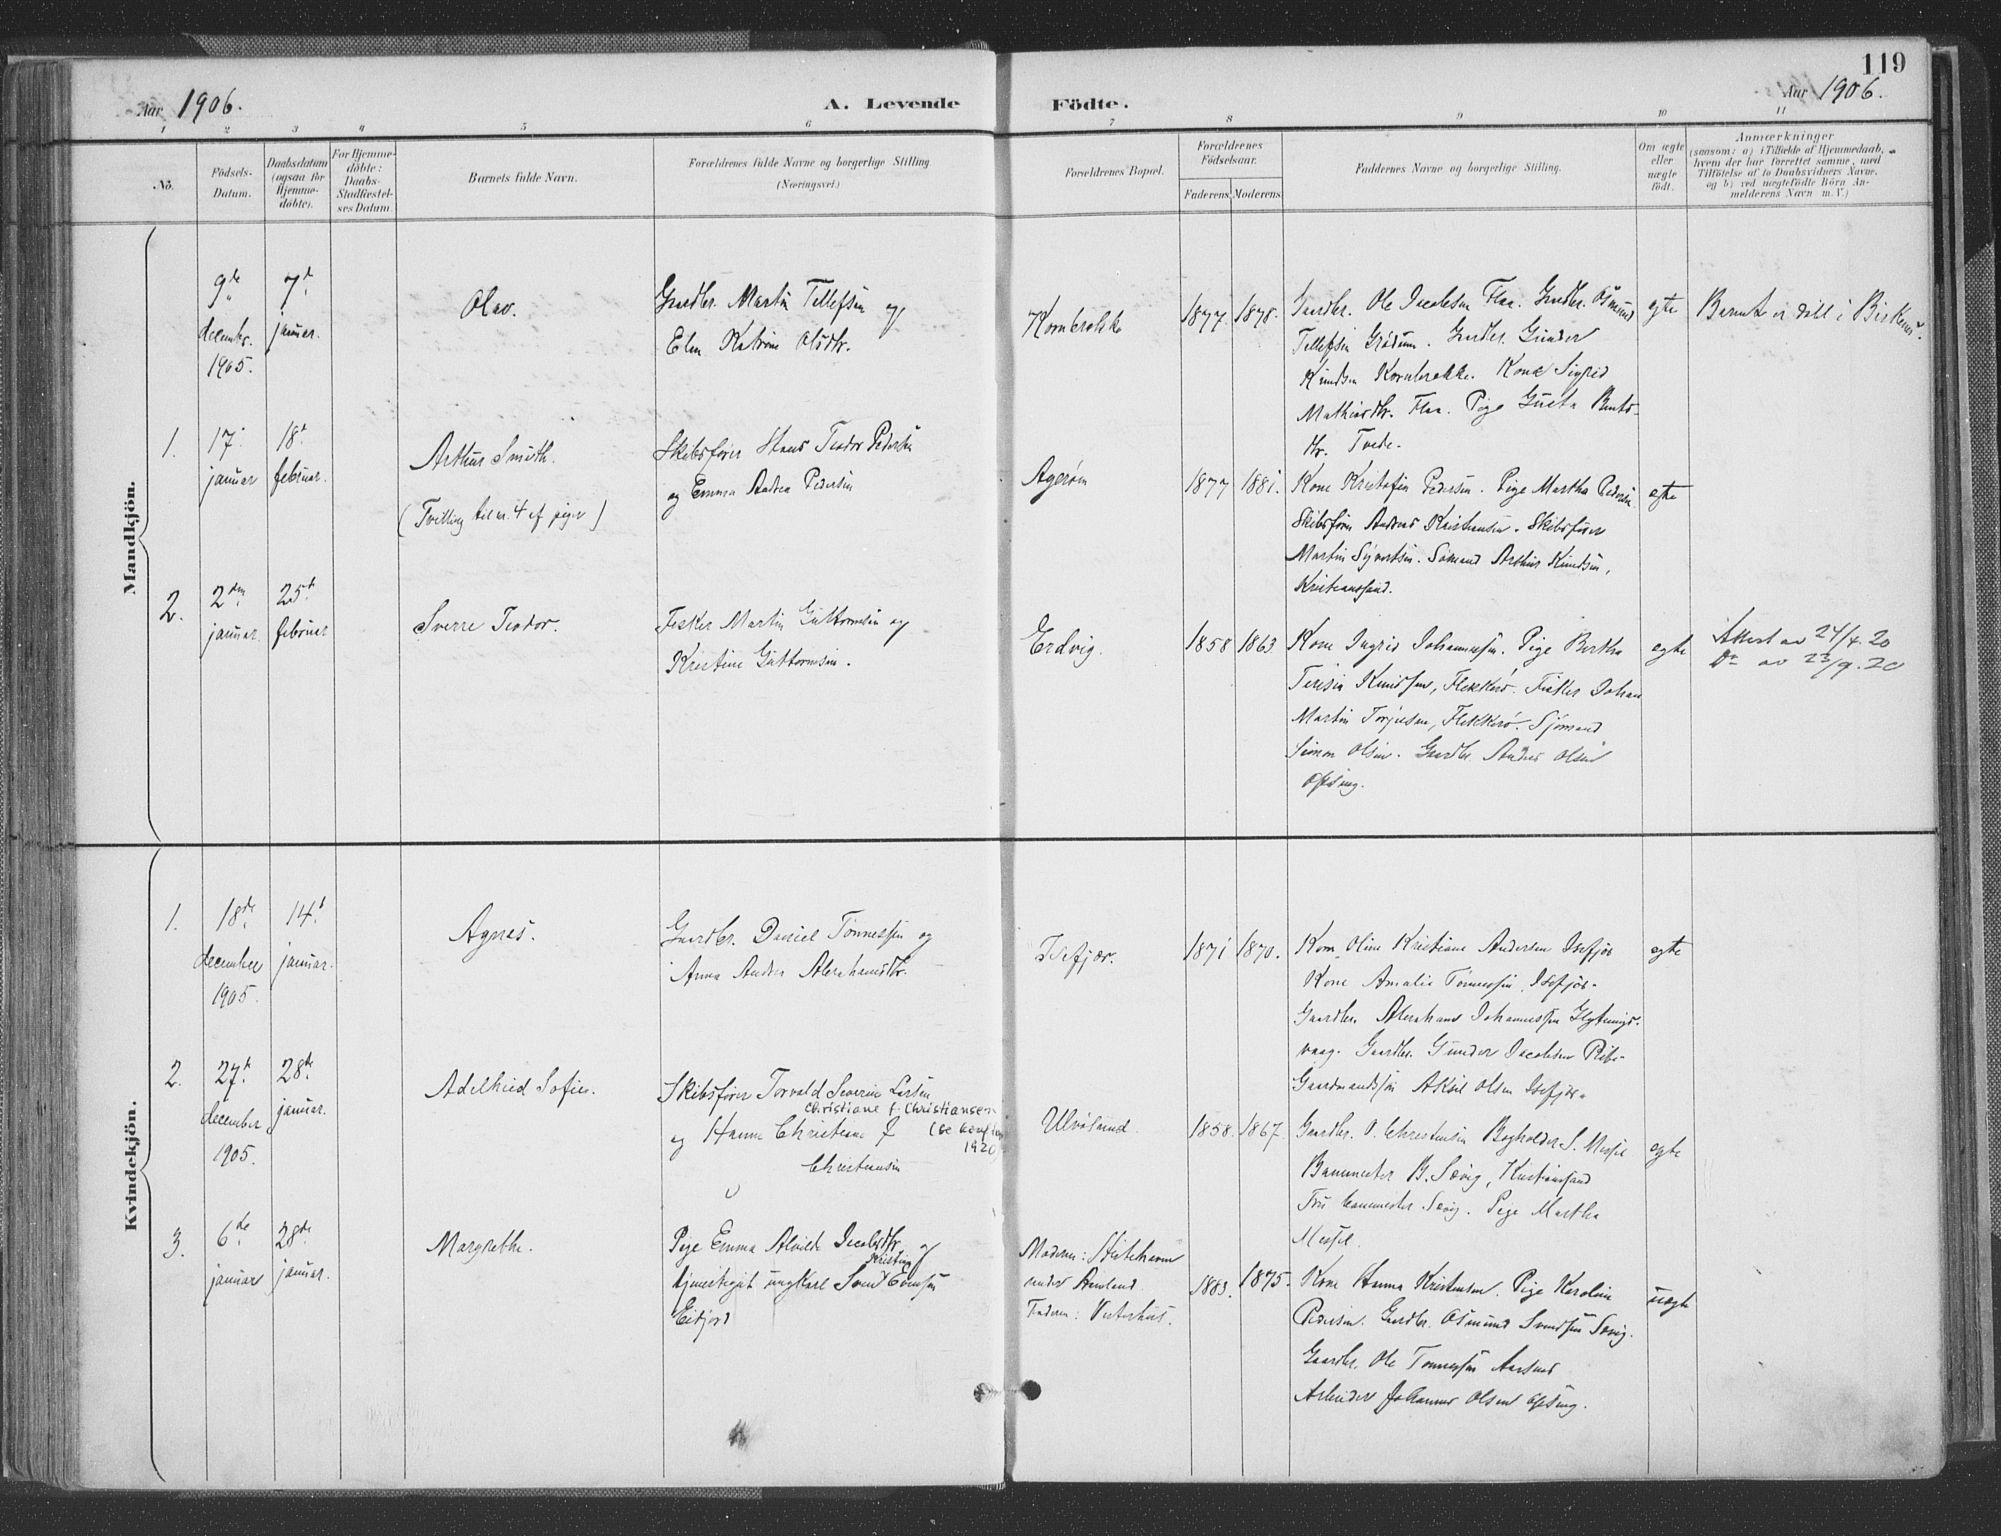 119
Aar 1906.
A. Levende Födte.
Aar 1906.
1 2 3 4 5 6 7 8 9 10 11
No.
Födsels-
Datum.
Daabsdatum
(ogsaa for
Hjemme-
döbte).
For Hjemme-
döbte:
Daabs-
Stadfæstel-
ses Datum
Barnets fulde Navn.
Forældrenes fulde Navne og borgerlige Stilling.
(Næringsvei.)
Forældrenes Bopæl.
Forældrenes
Födselsaar.
Faderens
Moderens
Faddernes Navne og borgerlige Stilling.
Om ægte
eller
uægte
födt.
Anmærkninger
(saasom: a) i Tilfælde af Hjemmedaab,
hvem der har forrettet samme, med
Tilföielse af to Daabsvidners Navne,
og b) ved uægtefödte Börn An-
melderens Navn m. V.)
Mandkjön.
9de
decembr.
1905.
7d
januar.
Olav.
Gaardbr. Martin Tellefsen og
Elen Katrine Olsdtr.
Kornbrekke
1877. 1878.
Gaardbr. Ole Jacobsen Flaa. Gaardbr. Osmund
Tellefsen Grödum. Gaardbr. Gunder
Knudsen Kornbrekke. Kone Sigrid
Mathiasdtr. Flaa. Pige Gusta Bents-
dtr. Tvede.
egte
Barnet er döbt i Birkenes.
1.
17.
januar
18d
februar.
Arthur Smith.
(Tvilling til nr. 4 af piger)
Skibsfører Hans Teodor Pedersen
og Emma Andrea Pedersen
Ageröen
1877 1881.
Kone Kristofin Pedersen. Pige Martha Pedersen.
Skibsfören Andreas Kristiansen. Skibsfören
Martin Syvertsen. Sömand Arthur Knudsen,
Kristianssand.
egte
2.
2den
januar.
25d
februar
Sverre Teodor.
Fisker Martin Guttormsen og
Kristine Guttormsen.
Erdvig.
1858 1863
Kone Ingrid Johannessen. Pige Bertha
Teresia Knudsen, Flekkerö. Fisker Johan
Martin Torjusen, Flekkerö. Sjömand
Simon Olsen. Gaardbr. Anders Olsen
egte
Attest av 24/4.20
Do av 23/9.20
Kvindekjön.
1.
18de
december
1905.
14d
januar.
Agnes.
Gaardbr. Daniel Tönnessen og
Anna Andrea Abrahamsdtr.
Isefjær.
1871 1870.
Kone Oline Kristiane Andersen Isefjær
Kone Amalie Tönnessen, Isefjær.
Gaardbr. Abraham Johannessen
vaag. Gaardbr. Gunder Jacobsen Ribe-
Gaardmandssön Aksel Olsen Isefjær.
egte
2.
27d
december
1905.
28de
januar.
Adelheid Sofie.
Skibsfører Torvald Severin Larsen
Christiane f. Christiansen
og Hanne Christiane f
1920
Christiansen
Ulvösund.
1858. 1867
Gaardbr. O. Christensen Bogholder S. Messel
Banemester B. Sævig, Kristianssand
Fru banemester Sævig. Pige Martha
Messel.
egte
3.
6de
januar
28de
januar.
Margrethe.
Pige Emma Alvilde Jacobsdtr. og
Kristian
tjenestegut ungkarl Sven Evensen
Eikjord
Moderen:
under
Faderen: Vesterhus.
1883. 1875.
Kone Hanna Kristensen. Pige Karoline
Pedersen. Gaardbr. Osmund Svendsen Sævig.
Gaardbr. Ole Tönnessen Aarsnes
Arbeider Johannes Olsen
uægte